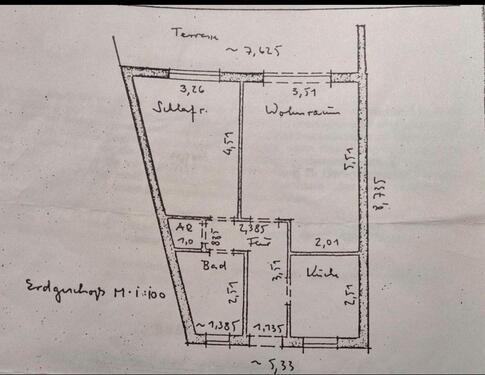 Terrasse
~ 7,625
3,26
3,51
Schlafr.
Wohnraum
4,51
5,51
8,735
AR
1,0
885
2,385
Flur
2,01
Bad
3,51
Küche
2,51
2,51
Erdgeschoß M. 1:100
~ 1,385
1,135
~ 5,33